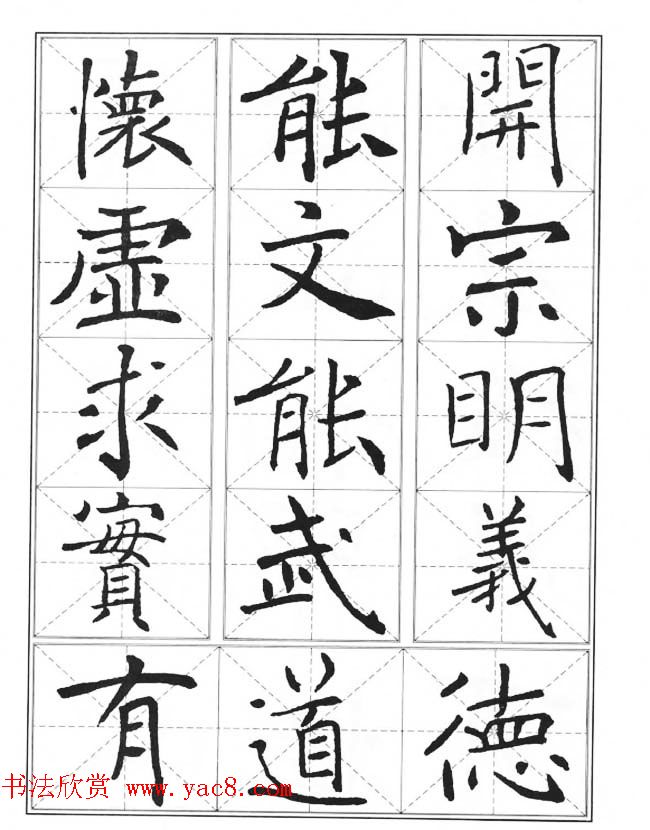 開宗明義
能文能武
懷虛求實
德道有
书法欣赏 www.yac8.com